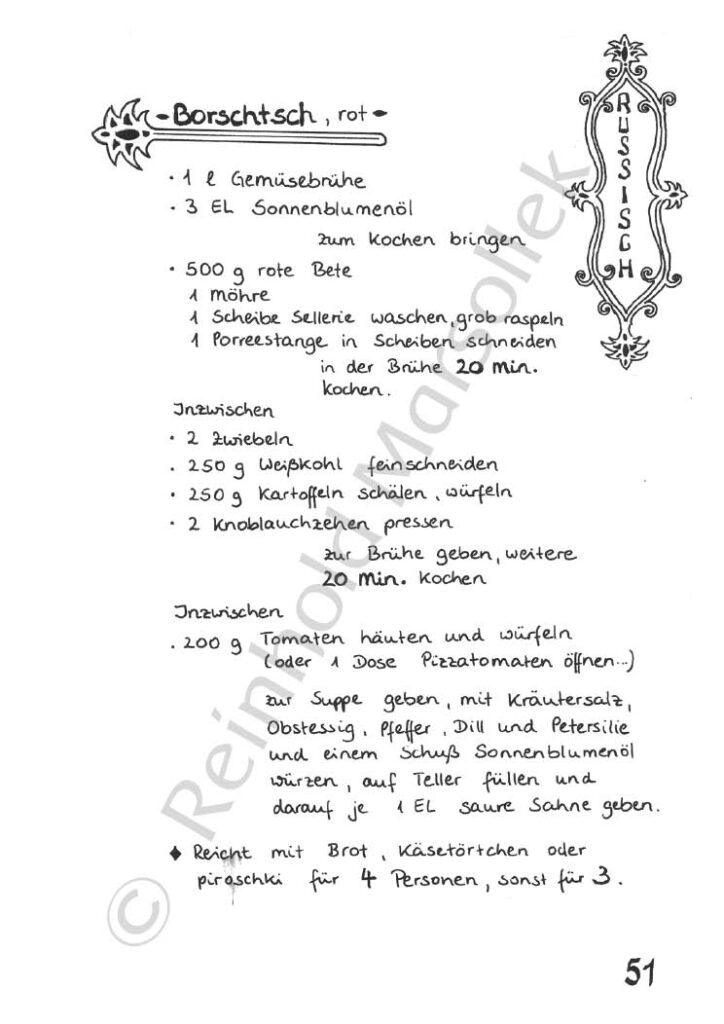 - Borschtsch, rot -
RUSSISCH
· 1 l Gemüsebrühe
· 3 EL Sonnenblumenöl
zum Kochen bringen
· 500 g rote Bete
1 Möhre
1 Scheibe Sellerie waschen, grob raspeln
1 Porreestange in Scheiben schneiden
in der Brühe 20 Min.
kochen.
Inzwischen
· 2 Zwiebeln
. 250 g Weißkohl feinschneiden
· 250 g Kartoffeln schälen, würfeln
· 2 Knoblauchzehen pressen
zur Brühe geben, weitere
20 Min. kochen
Inzwischen
. 200 g Tomaten häuten und würfeln
(oder 1 Dose Pizzatomaten öffnen...)
zur Suppe geben, mit Kräutersalz,
Obstessig, Pfeffer, Dill und Petersilie
und einem Schuß Sonnenblumenöl
würzen, auf Teller füllen und
darauf je 1 EL saure Sahne geben.
♦ Reicht mit Brot, Käsetörtchen oder
piroschki für 4 Personen, sonst für 3.
© Reinhold Marsollek
51